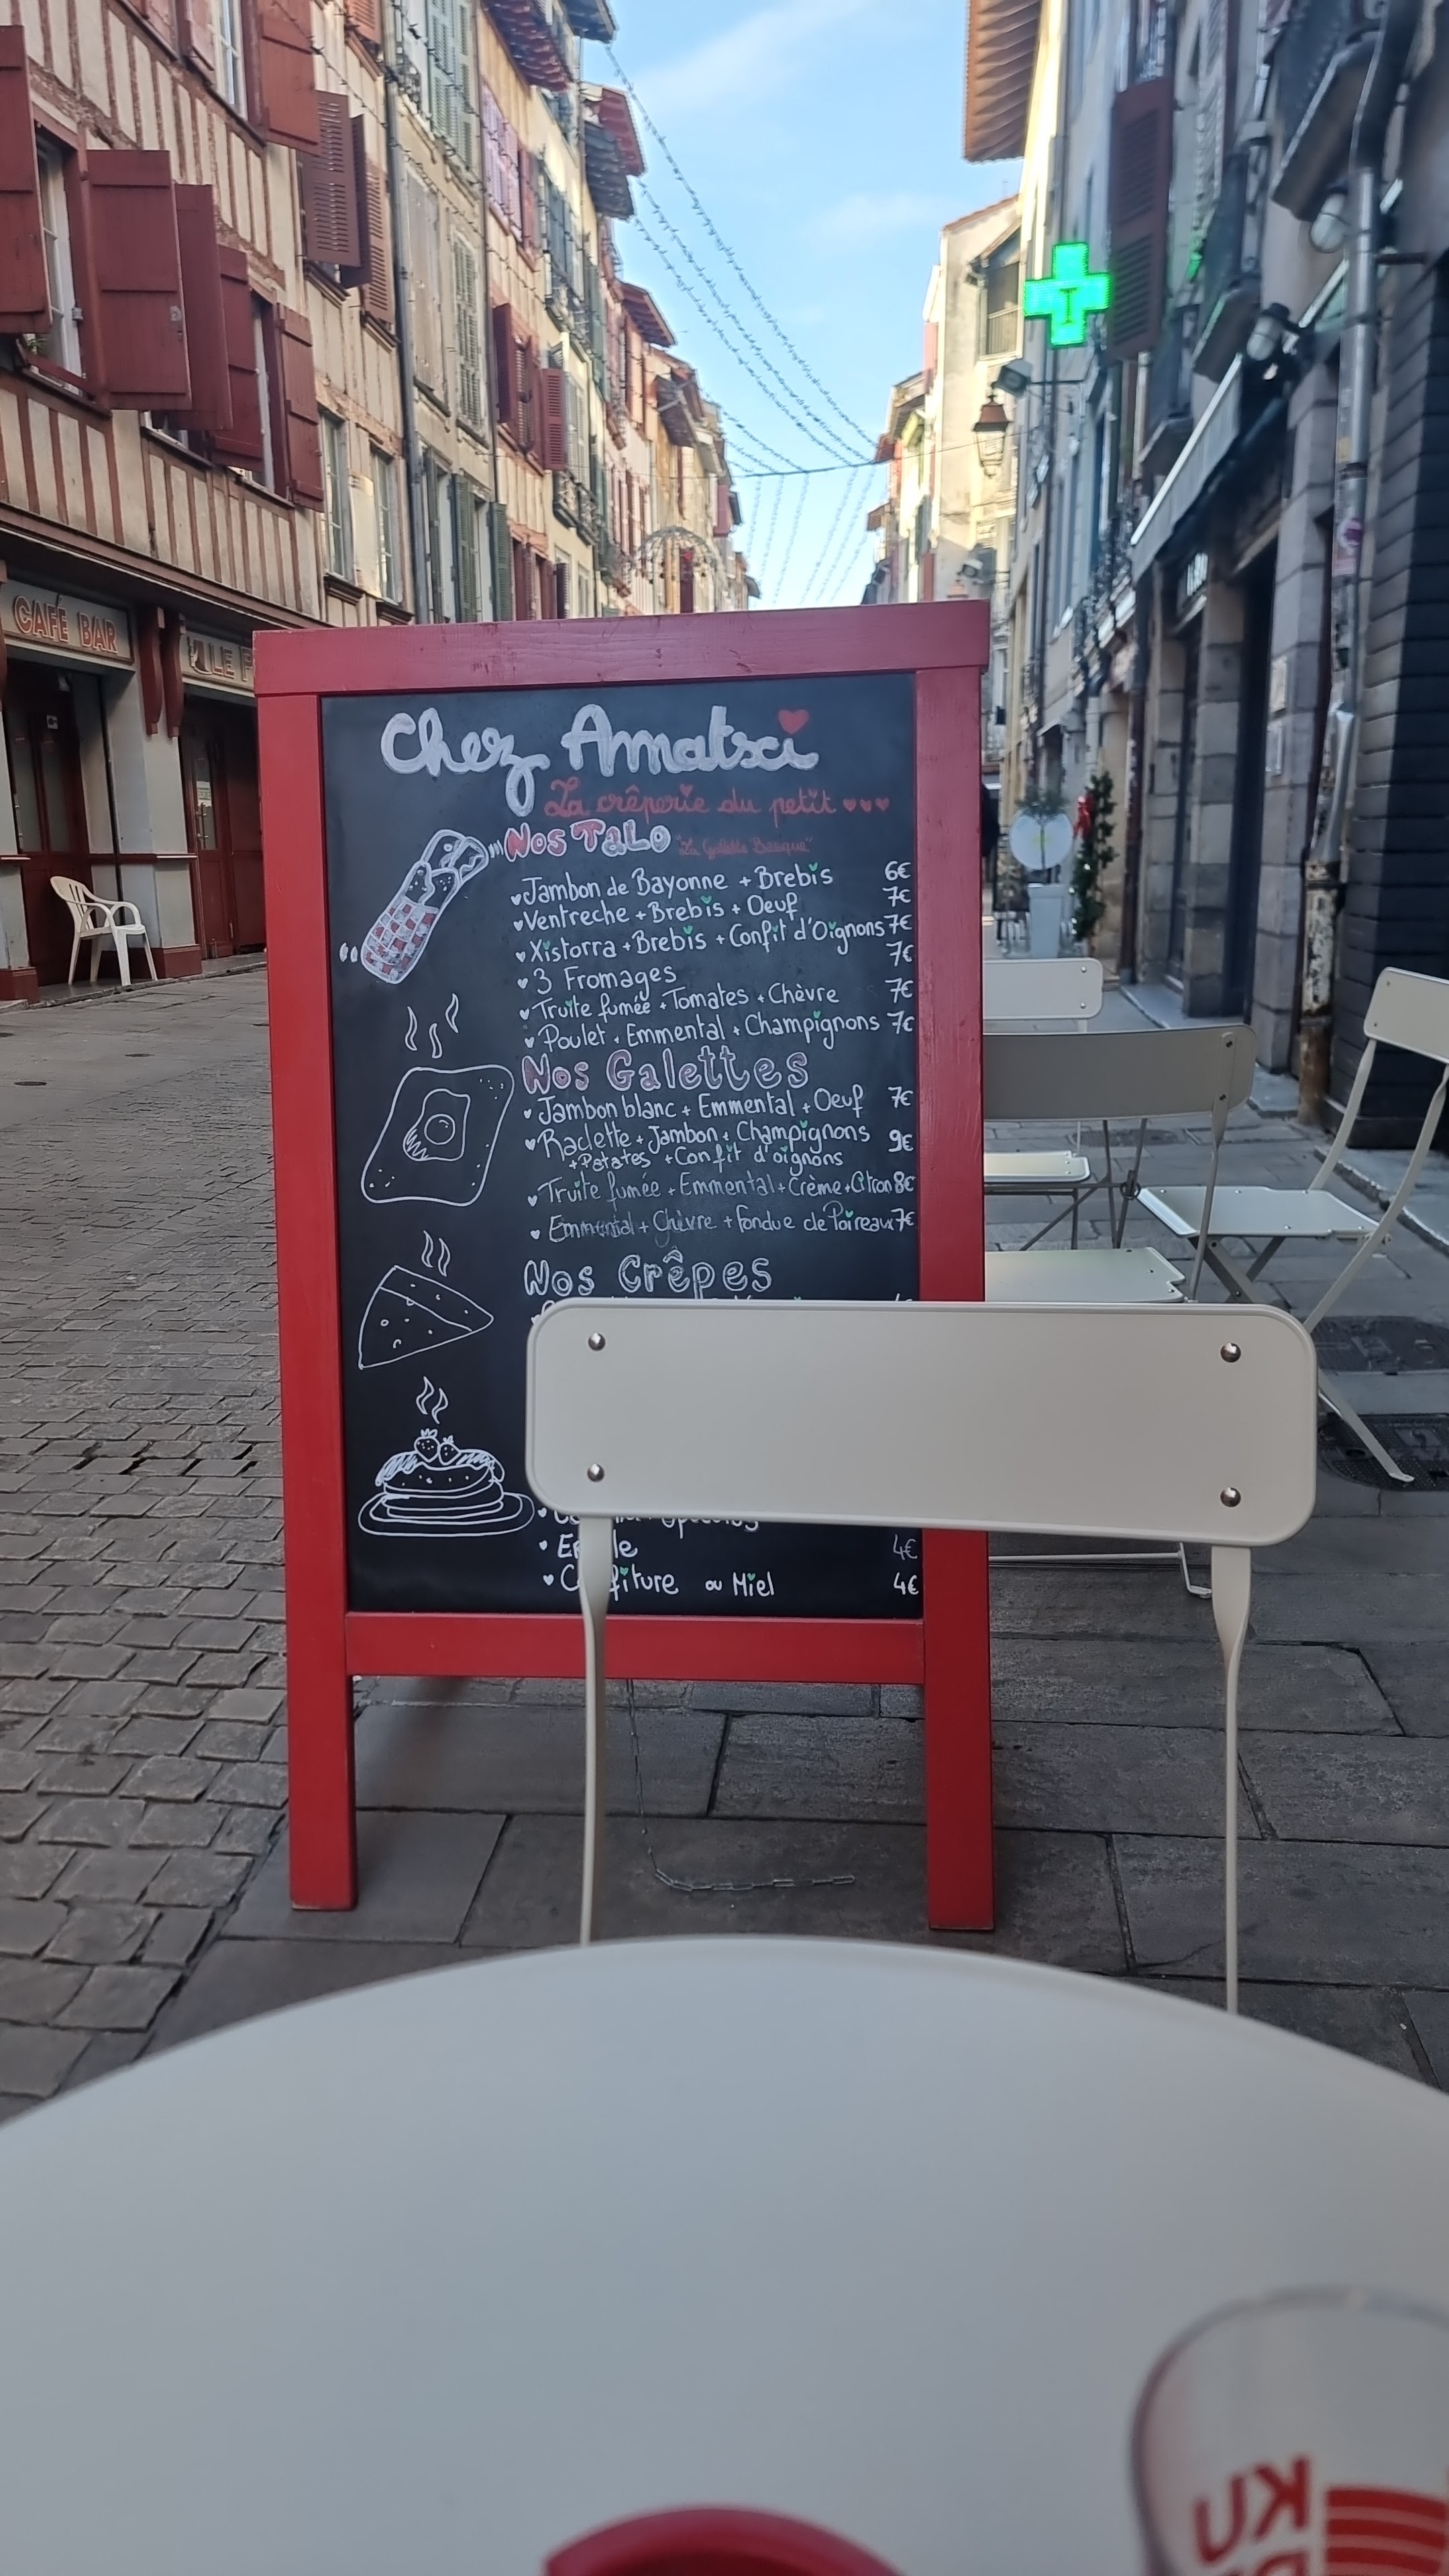 CAFÉ BAR
LE F
Chez Amatxi
La crêperie du petit
Nos Talo "La Galette Basque"
Jambon de Bayonne + Brebis 6€
Ventreche + Brebis + Oeuf 7€
Xistorra + Brebis + Confit d'Oignons 7€
3 Fromages 7€
Truite fumée + Tomates + Chèvre 7€
Poulet + Emmental + Champignons 7€
Nos Galettes
Jambon blanc + Emmental + Oeuf 7€
Raclette + Jambon + Champignons 9€
+ Patates + Confit d'oignons
Truite fumée + Emmental + Crème + Citron 8€
Emmental + Chèvre + fondue de Poireaux 7€
Nos Crêpes
4€
ou Miel 4€
KU